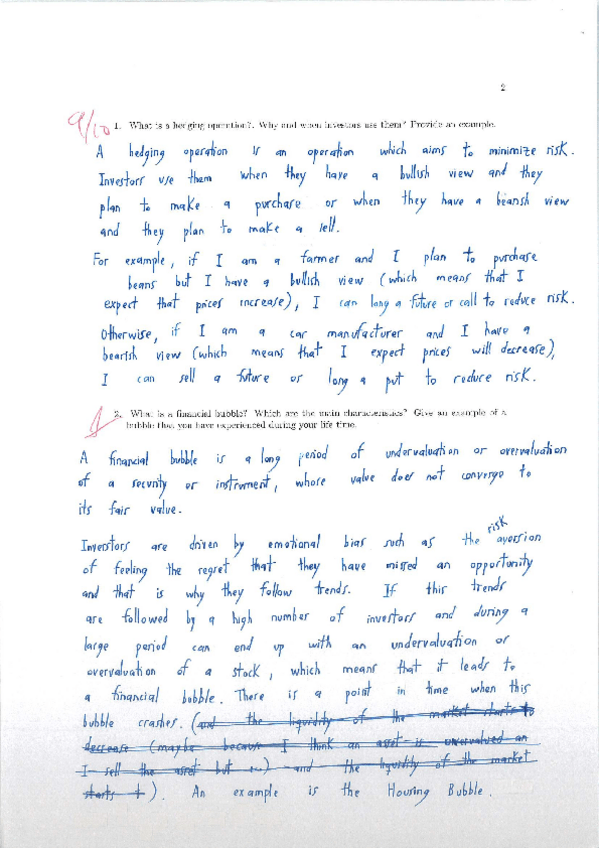 2
9/10
1. What is a hedging operation?. Why and when investors use them? Provide an example.
A hedging operation is an operation which aims to minimize risk.
Investors use them when they have a bullish view and they
plan to make a purchase or when they have a bearish view
and they plan to make a sell.
For example, if I am a farmer and I plan to purchase
beans but I have a bullish view (which means that I
expect that prices increase), I can long a future or call to reduce risk.
Otherwise, if I am a car manufacturer and I have a
bearish view (which means that I expect prices will decrease),
I can sell a future or long a put to reduce risk.
2. What is a financial bubble? Which are the main characteristics? Give an example of a
bubble that you have experienced during your life time.
A financial bubble is a long period of undervaluation or overvaluation
of a security or instrument, whose value does not converge to
its fair value.
risk
Investors are driven by emotional bias such as the aversion
of feeling the regret that they have missed an opportunity
and that is why they follow trends. If this trends
are followed by a high number of investors and during a
large period can end up with an undervaluation or
overvaluation of a stock, which means that it leads to
a financial bubble. There is a point in time when this
bubble crashes. (and the liquidity of the market starts to
decrease (maybe because I think an asset is overvalued an
I sell the asset but ...) and the liquidity of the market
starts t). An example is the Housing Bubble.